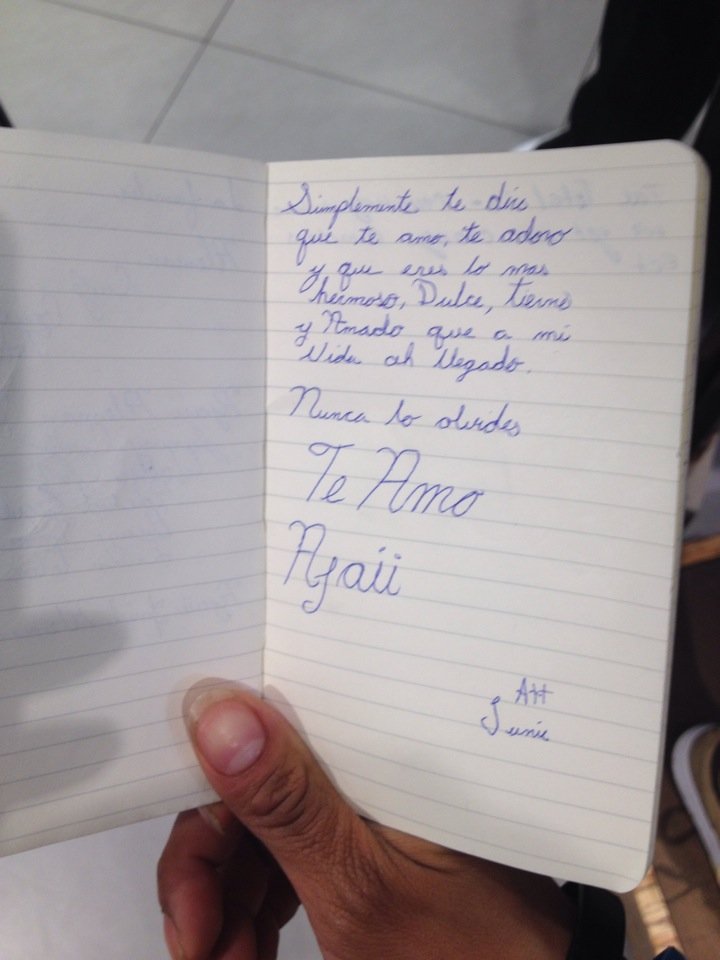 Simplemente te dire
que te amo, te adoro
y que eres lo mas
hermoso, Dulce, tierno
y Amado que a mi
Vida ah llegado.
Nunca lo olvides
Te Amo
Ajaii
Att
Junie